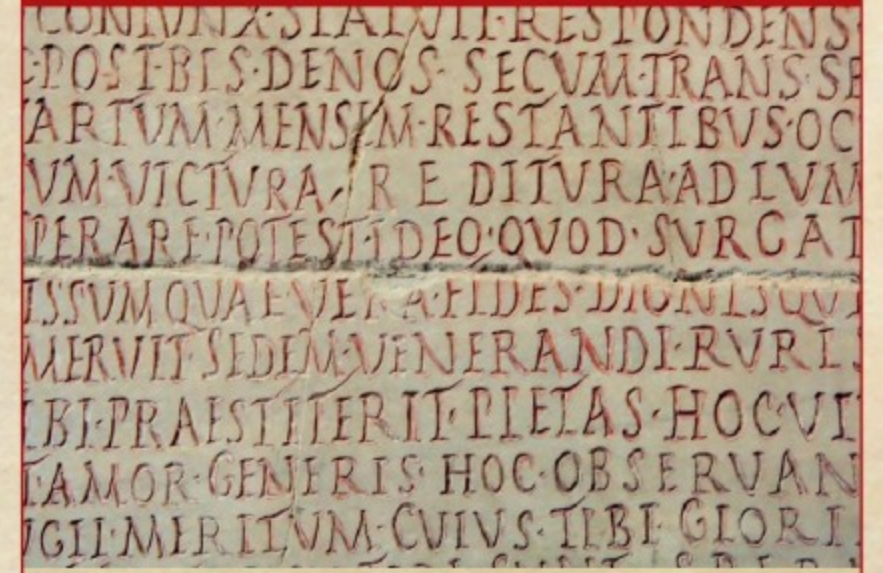 CONIVNX·STATVIT·RESPONDENS·
·POST·BIS·DENOS· SECVM·TRANS·SE
ARTVM·MENSEM·RESTANTIBVS·OC
VM·VICTVRA· R E DITVRA·AD IVVM
PERARE·POTEST·IDEO·QVOD·SVRGAT
ISSVM QVAE VERA·FIDES·DIGNISQV
MERVIT·SEDEM·VENERANDI·RVRIS
IBI·PRAESTITERIT·PIETAS·HOC VI
T·AMOR·GENERIS·HOC·OBSERVAN
VGII·MERITVM·CVIVS·TIBI·GLORI